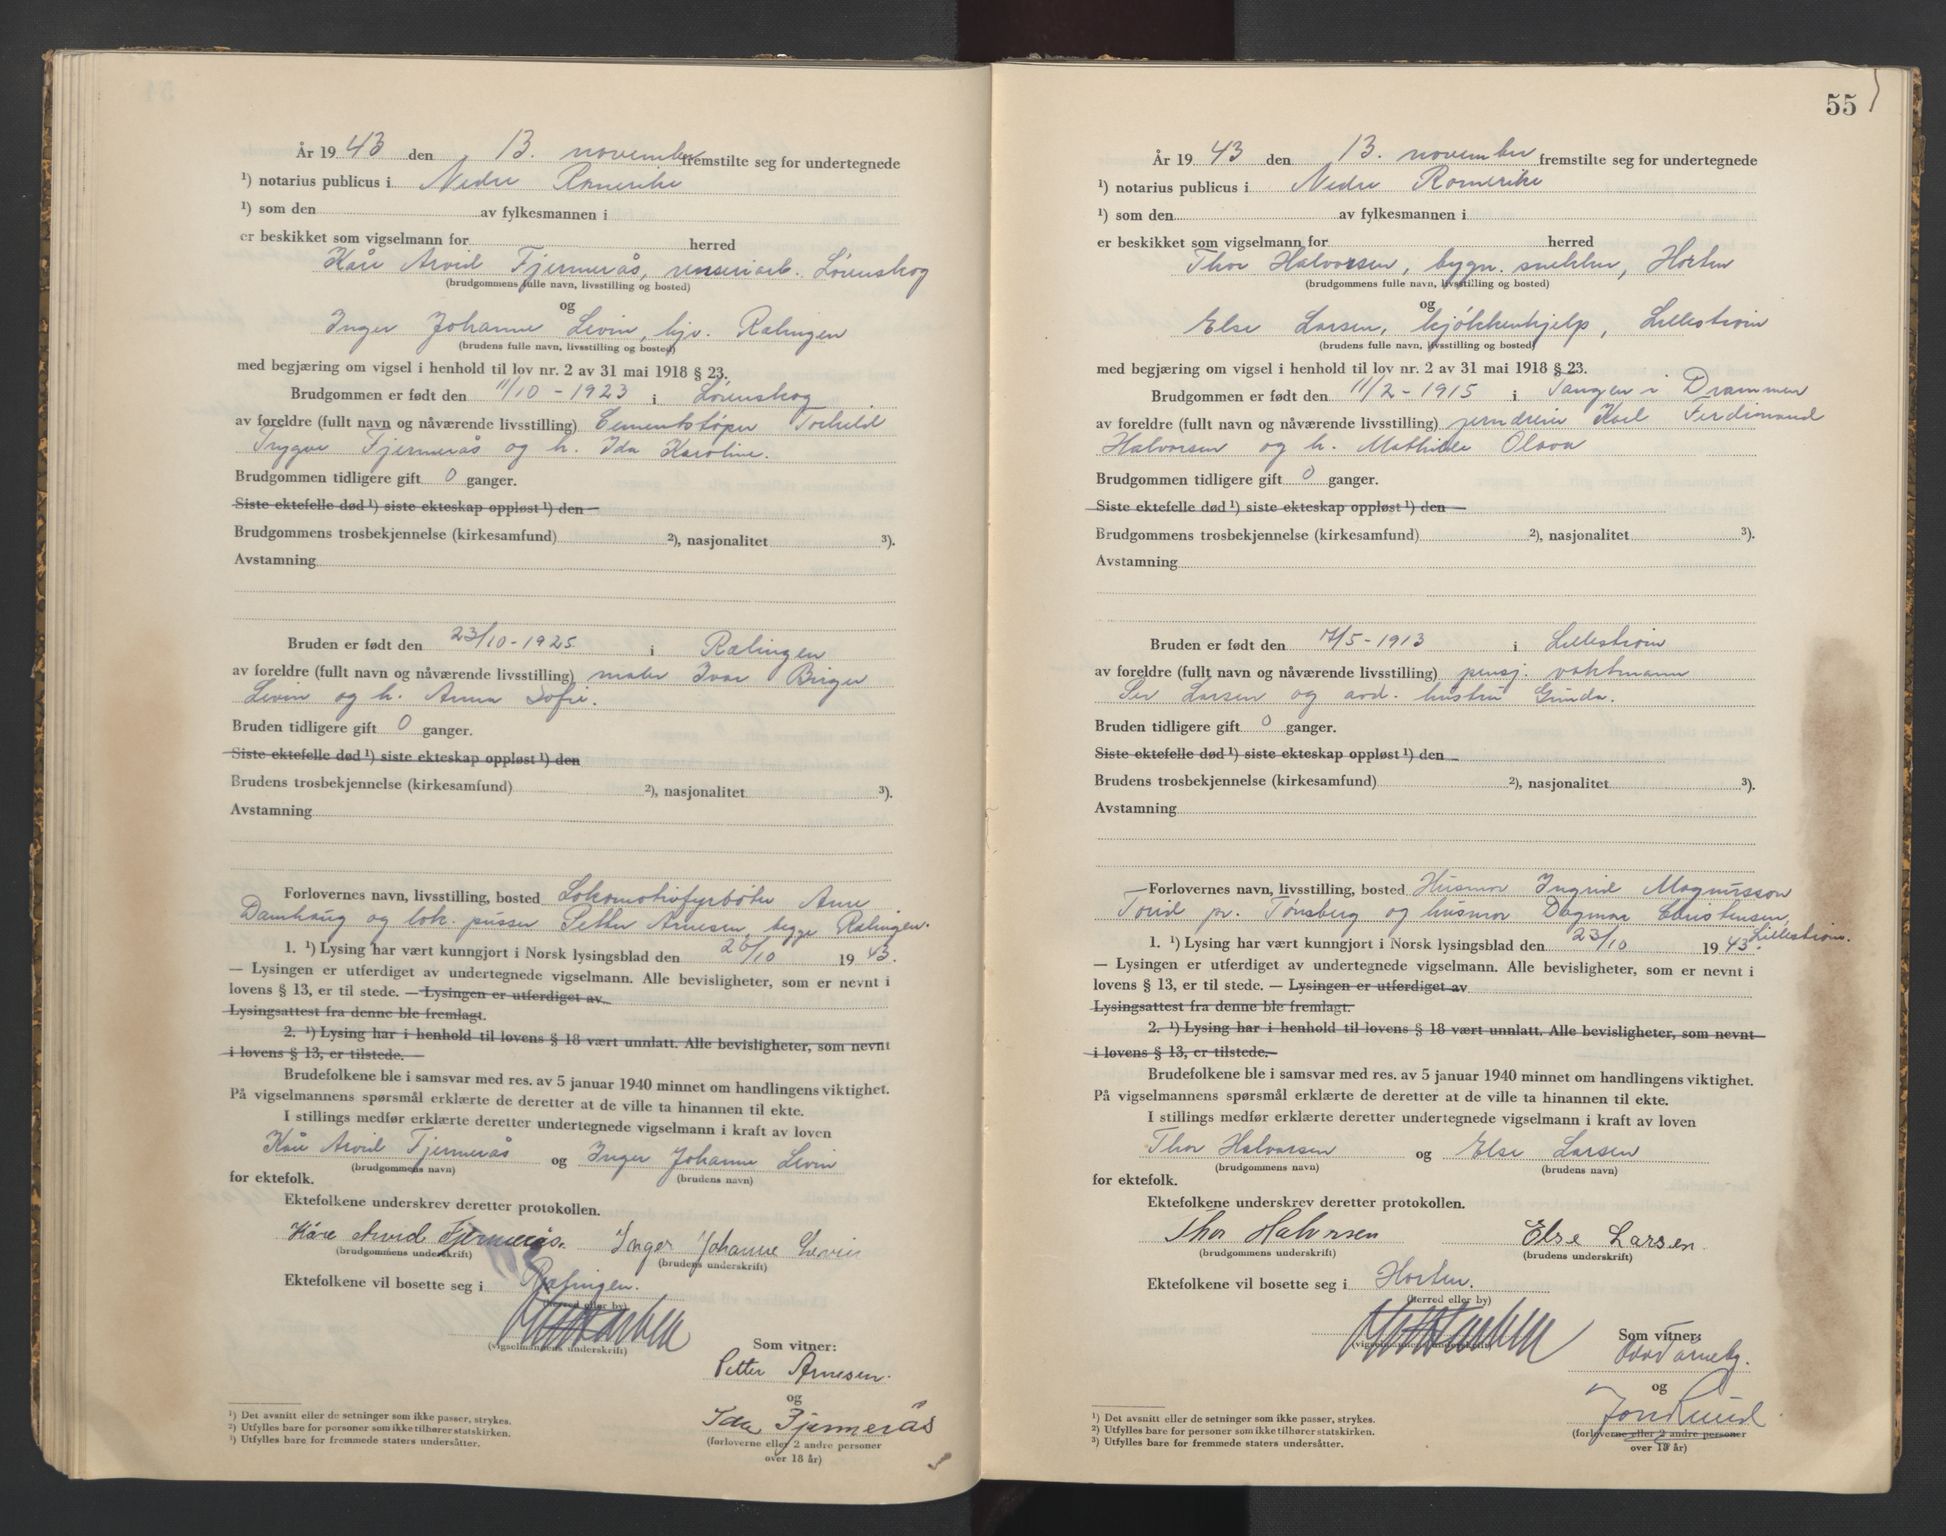 År 1943 den 13. november fremstilte seg for undertegnede
¹) notarius publicus i Nedre Romerike
¹) som den av fylkesmannen i
er beskikket som vigselmann for herred
Kåre Arvid Fjermerås, renseriarb. Lørenskog
(brudgommens fulle navn, livsstilling og bosted)
og
Inger Johanne Levin, hjv. Rælingen
(brudens fulle navn, livsstilling og bosted)
med begjæring om vigsel i henhold til lov nr. 2 av 31 mai 1918 § 23.
Brudgommen er født den 11/10 - 1923 i Lørenskog
av foreldre (fullt navn og nåværende livsstilling) Cementstøper Torhild
Trygve Fjermerås og h. Ida Karoline.
Brudgommen tidligere gift 0 ganger.
Siste ektefelle død ¹) siste ekteskap oppløst ¹) den
Brudgommens trosbekjennelse (kirkesamfund) ²), nasjonalitet ³).
Avstamning
Bruden er født den 23/10 - 1925 i Rælingen
av foreldre (fullt navn og nåværende livsstilling) maler Ivar Birger
Levin og h. Anna Sofie.
Bruden tidligere gift 0 ganger.
Siste ektefelle død ¹) siste ekteskap oppløst ¹) den
Brudens trosbekjennelse (kirkesamfund) ²), nasjonalitet ³).
Avstamning
Forlovernes navn, livsstilling, bosted Lokomotivfyrbøter Arne
Damhaug og lok. pusser Petter Arnesen, begge Rælingen.
1. ¹) Lysing har vært kunngjort i Norsk lysingsblad den 26/10 1943.
— Lysingen er utferdiget av undertegnede vigselmann. Alle bevisligheter, som er nevnt i
lovens § 13, er til stede. — Lysingen er utferdiget av
Lysingsattest fra denne ble fremlagt.
2. ¹) Lysing har i henhold til lovens § 18 vært unnlatt. Alle bevisligheter, som nevnt
i lovens § 13, er tilstede.
Brudefolkene ble i samsvar med res. av 5 januar 1940 minnet om handlingens viktighet.
På vigselmannens spørsmål erklærte de deretter at de ville ta hinannen til ekte.
I stillings medfør erklærte deretter undertegnede vigselmann i kraft av loven
Kåre Arvid Fjermerås og Inger Johanne Levin
(brudgommens navn) (brudens navn)
for ektefolk.
Ektefolkene underskrev deretter protokollen.
Kåre Arvid Fjermerås. Inger Johanne Levin
(brudgommens underskrift) (brudens underskrift)
Ektefolkene vil bosette seg i Rælingen.
(herred eller by)
(vigselmannens underskrift)
Som vitner:
Petter Arnesen.
og
Ida Fjermerås
(forloverne eller 2 andre personer
over 18 år)
¹) Det avsnitt eller de setninger som ikke passer, strykes.
²) Utfylles bare for personer som ikke tilhører statskirken.
³) Utfylles bare for fremmede staters undersåtter.
55
År 1943 den 13. november fremstilte seg for undertegnede
¹) notarius publicus i Nedre Romerike
¹) som den av fylkesmannen i
er beskikket som vigselmann for herred
Thor Halvorsen, bygn. snekker, Horten
(brudgommens fulle navn, livsstilling og bosted)
og
Else Larsen, kjøkkenhjelp, Lillestrøm
(brudens fulle navn, livsstilling og bosted)
med begjæring om vigsel i henhold til lov nr. 2 av 31 mai 1918 § 23.
Brudgommen er født den 11/2 - 1915 i Tangen i Drammen
av foreldre (fullt navn og nåværende livsstilling) jerndreier Karl Ferdinand
Halvorsen og h. Mathilde Olava
Brudgommen tidligere gift 0 ganger.
Siste ektefelle død ¹) siste ekteskap oppløst ¹) den
Brudgommens trosbekjennelse (kirkesamfund) ²), nasjonalitet ³).
Avstamning
Bruden er født den 17/5 - 1913 i Lillestrøm
av foreldre (fullt navn og nåværende livsstilling) pensj. vaktmann
Per Larsen og avd. hustru Gunda.
Bruden tidligere gift 0 ganger.
Siste ektefelle død ¹) siste ekteskap oppløst ¹) den
Brudens trosbekjennelse (kirkesamfund) ²), nasjonalitet ³).
Avstamning
Forlovernes navn, livsstilling, bosted Husmor Ingrid Magnusson
Torød pr. Tønsberg og husmor Dagmar Christensen,
Lillestrøm.
1. ¹) Lysing har vært kunngjort i Norsk lysingsblad den 23/10 1943.
— Lysingen er utferdiget av undertegnede vigselmann. Alle bevisligheter, som er nevnt i
lovens § 13, er til stede. — Lysingen er utferdiget av
Lysingsattest fra denne ble fremlagt.
2. ¹) Lysing har i henhold til lovens § 18 vært unnlatt. Alle bevisligheter, som nevnt
i lovens § 13, er tilstede.
Brudefolkene ble i samsvar med res. av 5 januar 1940 minnet om handlingens viktighet.
På vigselmannens spørsmål erklærte de deretter at de ville ta hinannen til ekte.
I stillings medfør erklærte deretter undertegnede vigselmann i kraft av loven
Thor Halvorsen og Else Larsen
(brudgommens navn) (brudens navn)
for ektefolk.
Ektefolkene underskrev deretter protokollen.
Thor Halvorsen Else Larsen.
(brudgommens underskrift) (brudens underskrift)
Ektefolkene vil bosette seg i Horten.
(herred eller by)
(vigselmannens underskrift)
Som vitner:
og
(forloverne eller 2 andre personer
over 18 år)
¹) Det avsnitt eller de setninger som ikke passer, strykes.
²) Utfylles bare for personer som ikke tilhører statskirken.
³) Utfylles bare for fremmede staters undersåtter.